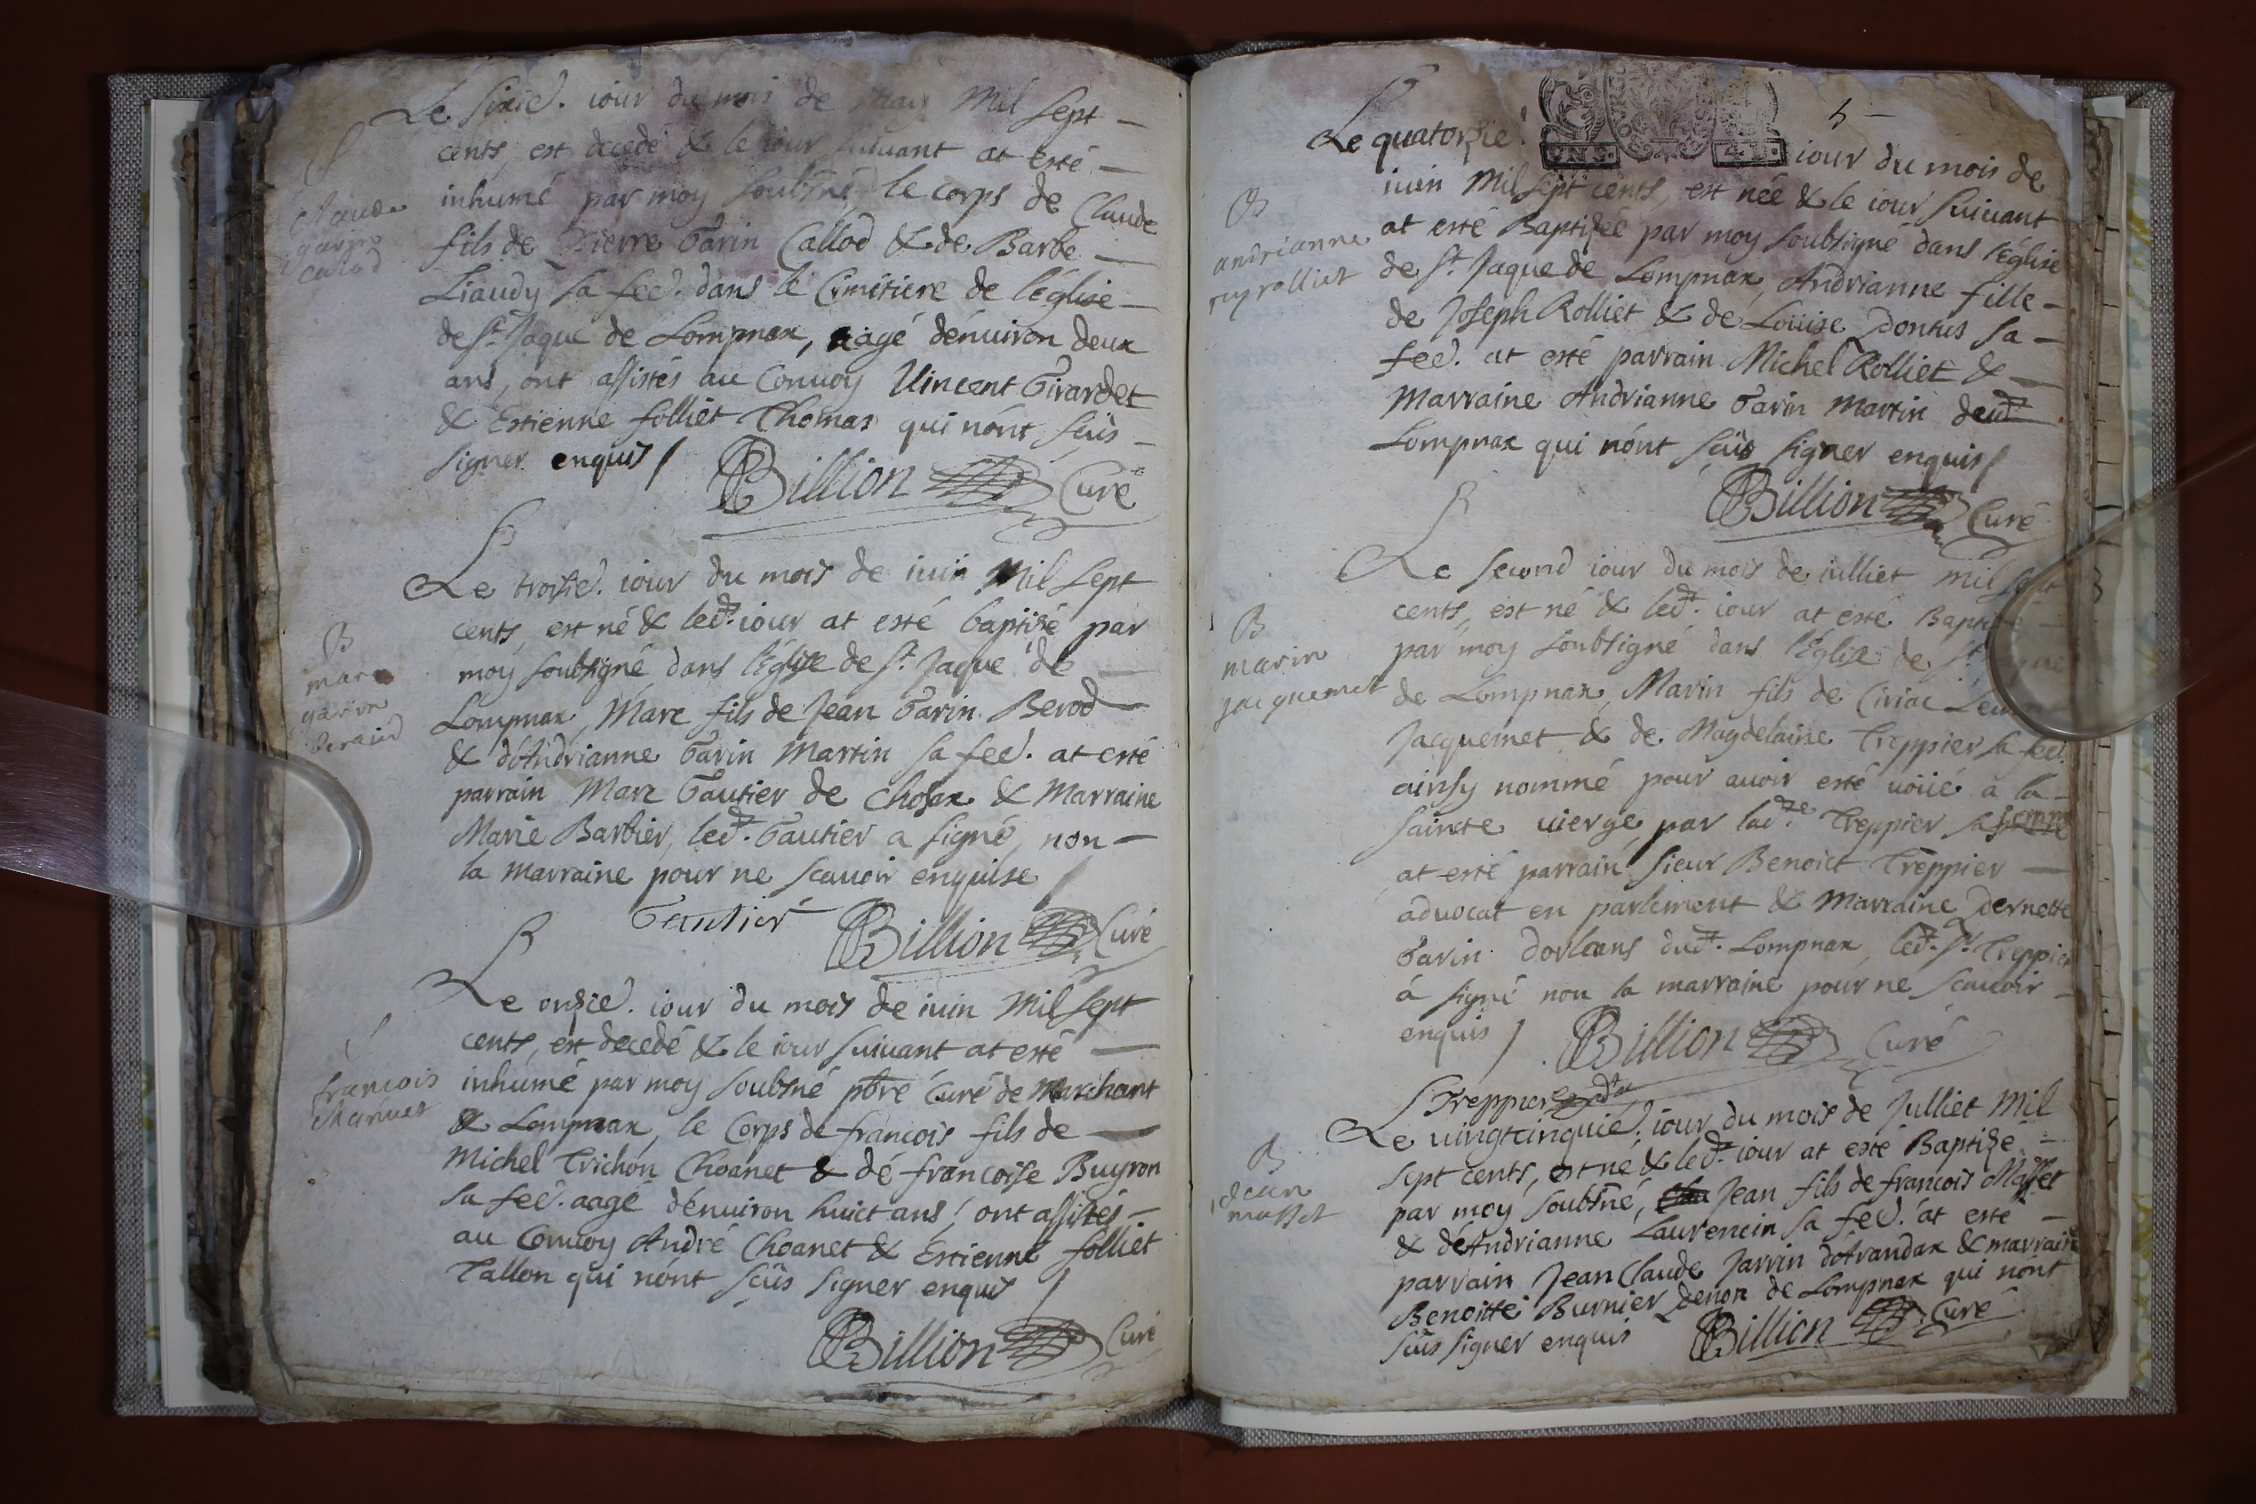 Le sixie&. iour du mois de May Mil sept
cents, est decedé & le iour suiuant at esté
Claude
garin
calod
inhumé par moy soubsné, le corps de Claude
fils de Pierre Garin Callod & de Barbe
Liaudy sa feê. dans le Cimitiere de léglise
de St. Jaque de Lompnax, aagé dénuiron deux
ans, ont assistés au Conuoy Vincent Girardet
& Estienne folliet Thomas qui nónt sçüs
signer enquis /
Billion Curé
Le troisie. iour du mois de iuin Mil sept
cents, est né & ledt. iour at esté baptisé par
B
marc
garin
beraud
moy soubsigné dans léglise de St. Jaque de
Lompnax, Marc fils de Jean Garin Berod
& d'Andrianne Garin Martin sa feê. at esté
parrain Marc Gautier de Chosax & Marraine
Marie Barbier, ledt. Gautier a signé, non
la Marraine pour ne scauoir enquise /
Gautier Billion Curé
Le onzie. iour du mois de iuin Mil sept
cents, est decedé & le iour suiuant at esté
francois
inhumé par moy soubsné pbré Curé de Marchant
& Lompnax, le Corps de francois fils de
Michel Trichon Choanet & dé francoise Buyron
sa feê. aagé dénuiron huict ans, ont assistés
au Conuoy André Choanet & Estienne folliet
Tallon qui nónt sçüs signer enquis /
Billion Curé
5
Le quatorzie. iour du mois de
iuin Mil sept cents, est née & le iour suiuant
B
andrianne
at esté Baptizée par moy soubsigné dans léglise
de St. Jaque de Lompnax, Andrianne fille
de Joseph Rolliet & de Loüise Dontus sa
feê. at esté parrain Michel Rolliet &
Marraine Andrianne Garin Martin dudt
Lompnax qui nónt sçüs signer enquis /
Billion Curé
Le second iour du mois de iulliet mil sept
cents, est né & ledt. iour at esté Baptisé
B
marin
jacquemet
par moy soubsigné dans léglise de St. Jaque
de Lompnax, Marin fils de Ciriac
Jacquemet & de Magdelaine Treppier sa feê.
ainsy nommé pour auoir esté uoüé a la
saincte uierge par ladte. Treppier sa femme
at esté parrain sieur Benoict Treppier
aduocat en parlement & Marraine Pernette
Garin Dorleans dudt. Lompnax, ledt. Sr. Treppier
á signé non la marraine pour ne scauoir
enquis / Billion Curé
Treppier
Le uingtcinquie. iour du mois de Julliet Mil
sept cents, est né & ledt. iour at esté Baptizé
B
Jean
masset
par moy soubsné, Jean fils de francois Masset
& d'Andrianne Laurencin sa feê. at esté
parrain Jean Claude Jarrin d'Arandax & marraine
Benoitte Burnier Denon de Lompnax qui nónt
sçüs signer enquis Billion Curé